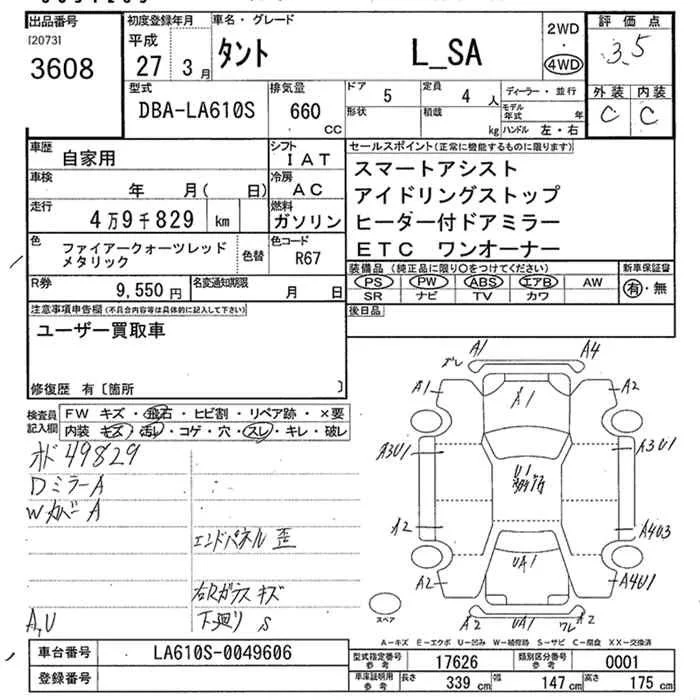 出品番号
[2073]
3608
初度登録年月
平成
27 3月
車名・グレード
タント L_SA
2WD
・
4WD
評価点
3.5
外装 内装
C C
型式
DBA-LA610S
排気量
660
CC
ドア 5
定員 4 人
形状
積載 kg
ディーラー・並行
モデル年式 年
ハンドル 左・右
車歴 自家用
シフト IAT
車検 年 月( 日)
冷房 AC
走行 4万9千829 km
燃料 ガソリン
色 ファイアークォーツレッド
メタリック
色替
色コード R67
R券 9,550円
名変通知期限 月 日
セールスポイント(正常に機能するものに限ります)
スマートアシスト
アイドリングストップ
ヒーター付ドアミラー
ETC ワンオーナー
装備品(純正品に限り○をつけてください)
PS PW ABS エアB AW
SR ナビ TV カワ
新車保証書
有・無
後日品
注意事項申告欄(不具合内容等は具体的に記入して下さい)
ユーザー買取車
修復歴 有〔箇所 〕
検査員記入欄
FW キズ・飛石・ヒビ割・リペア跡・×要
内装 キズ・汚レ・コゲ・穴・スレ・キレ・破レ
オド 49829
Dミラー A
Wカバー A
エンドパネル 歪
右Rガラス キズ
A,U 下廻り S
ズレ A1 A4
A1 A1 A2
A3U1 U1 A3U1
A2 A4U3
A2 UA1 A4U1
A2 UA1 ワレ A2
スペア
A-キズ E-エクボ U-凹み W-補修跡 S-サビ C-腐食 XX-交換済
車台番号 LA610S-0049606
登録番号
型式指定番号 参考 17626
類別区分番号 参考 0001
車庫証明用 参考 長さ 339cm 幅 147cm 高さ 175cm